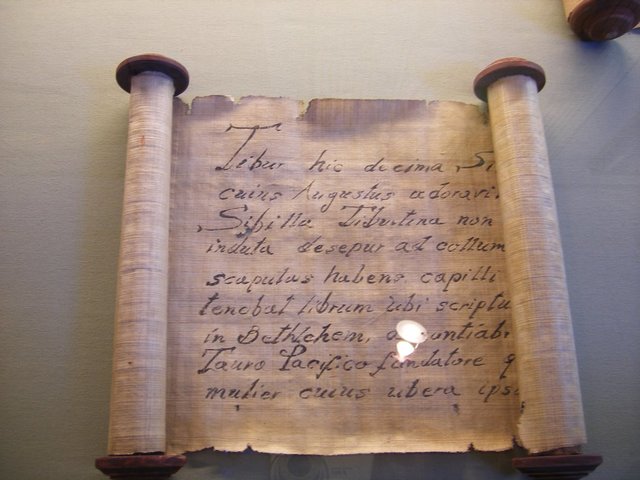 Tibur hic decima Si
cuius Augustus adoravi
Sibilla Tiburtina non
induta desepur ad collum
scapulas habens capilli
tenebat librum ubi scriptu
in Bethlehem,
Tauro Pacifico fundatore q
mulier cuius ubera ips